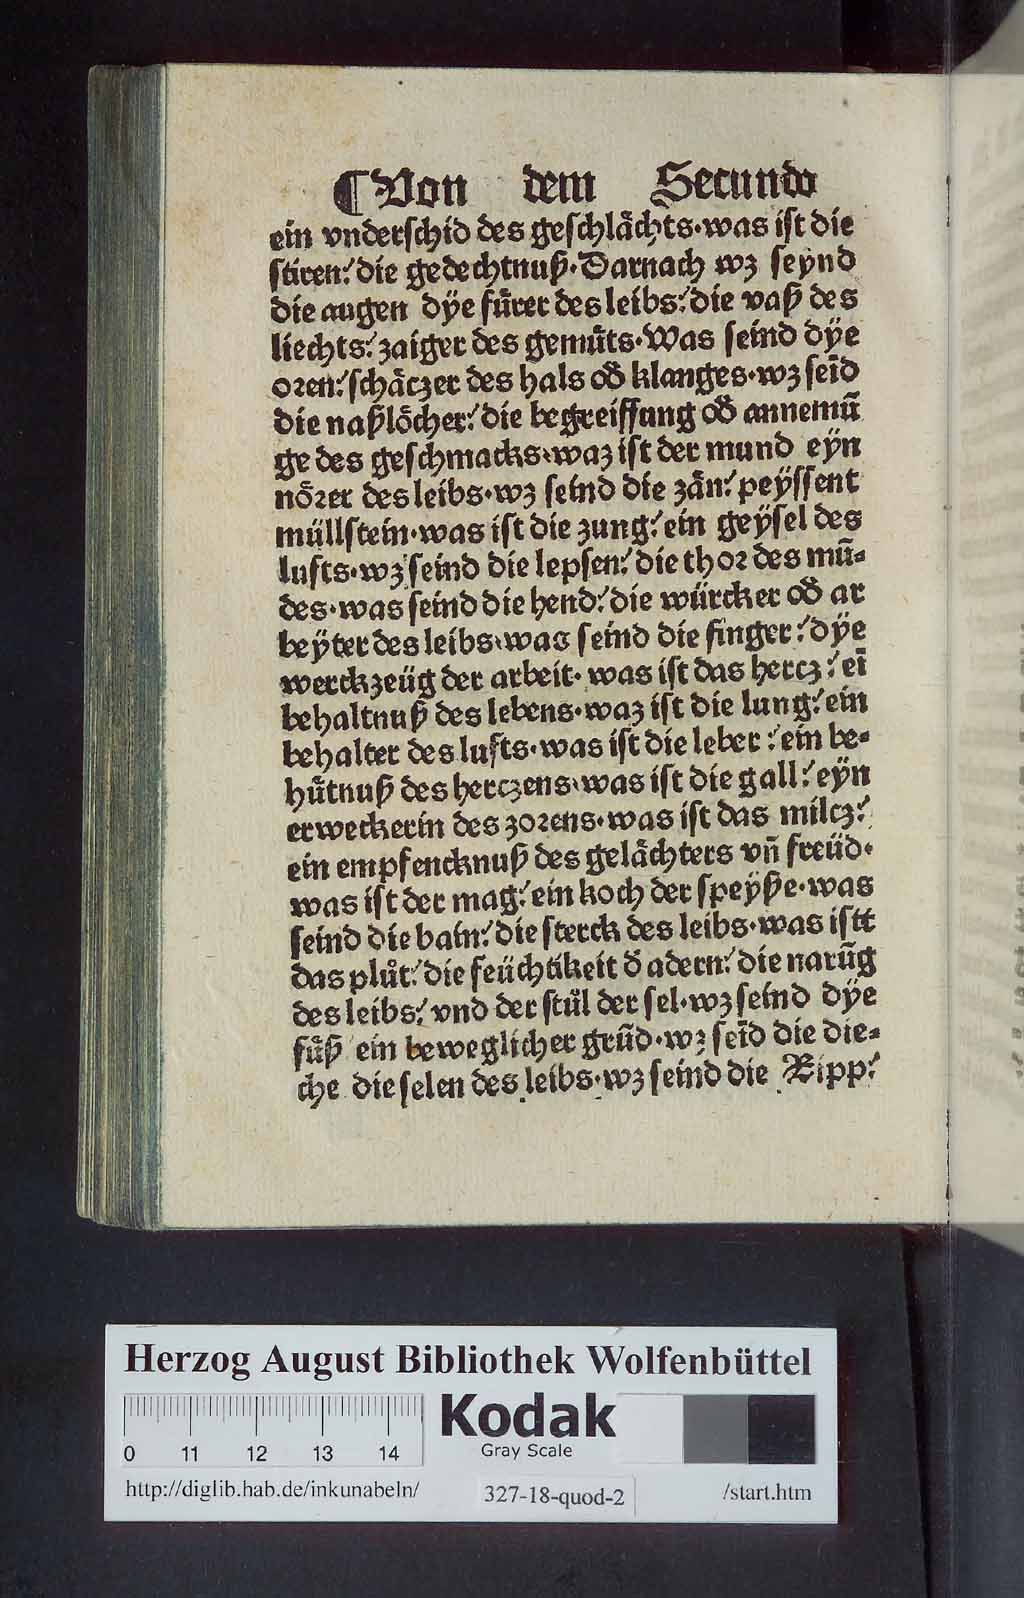 ¶Von dem Secundo
ein vnderschid des geschlächts·was ist die
stiren?die gedechtnuß·Darnach wz seynd
die augen dÿe fürer des leibs?die vaß des
liechts?zaiger des gemüts·Was seind dÿe
oren?schäczer des hals oď klanges·wz seīd
die naßlöcher?die begreiffung oď annemū
ge des geschmacks·waz ist der mund eÿn
nörer des leibs·wz seind die zän?peÿssent
müllstein·was ist die zung?ein geÿsel des
lufts·wz seind die lepsen?die thor des mū⸗
des·was seind die hend?die würcker oď ar
beÿter des leibs·was seind die finger?dÿe
werckzeüg der arbeit·was ist das hercz?eī
behaltnuß des lebens·waz ist die lung?ein
behalter des lufts·was ist die leber?ein be⸗
hůtnuß des herczens·was ist die gall?eÿn
erweckerin des zorens·was ist das milcz?
ein empfencknuß des gelächters vn̄ freüd·
was ist der mag?ein koch der speÿße·was
seind die bain?die sterck des leibs·was istt
das plůt?die feüchtikeit ď adern?die narūg
des leibs?vnd der stůl der sel·wz seind dÿe
füß ein beweglicher grūd·wz seīd die die⸗
che die selen des leibs·wz seind die Ripp?
Herzog August Bibliothek Wolfenbüttel
0 11 12 13 14
Kodak
Gray Scale
http://diglib.hab.de/inkunabeln/ 327-18-quod-2 /start.htm